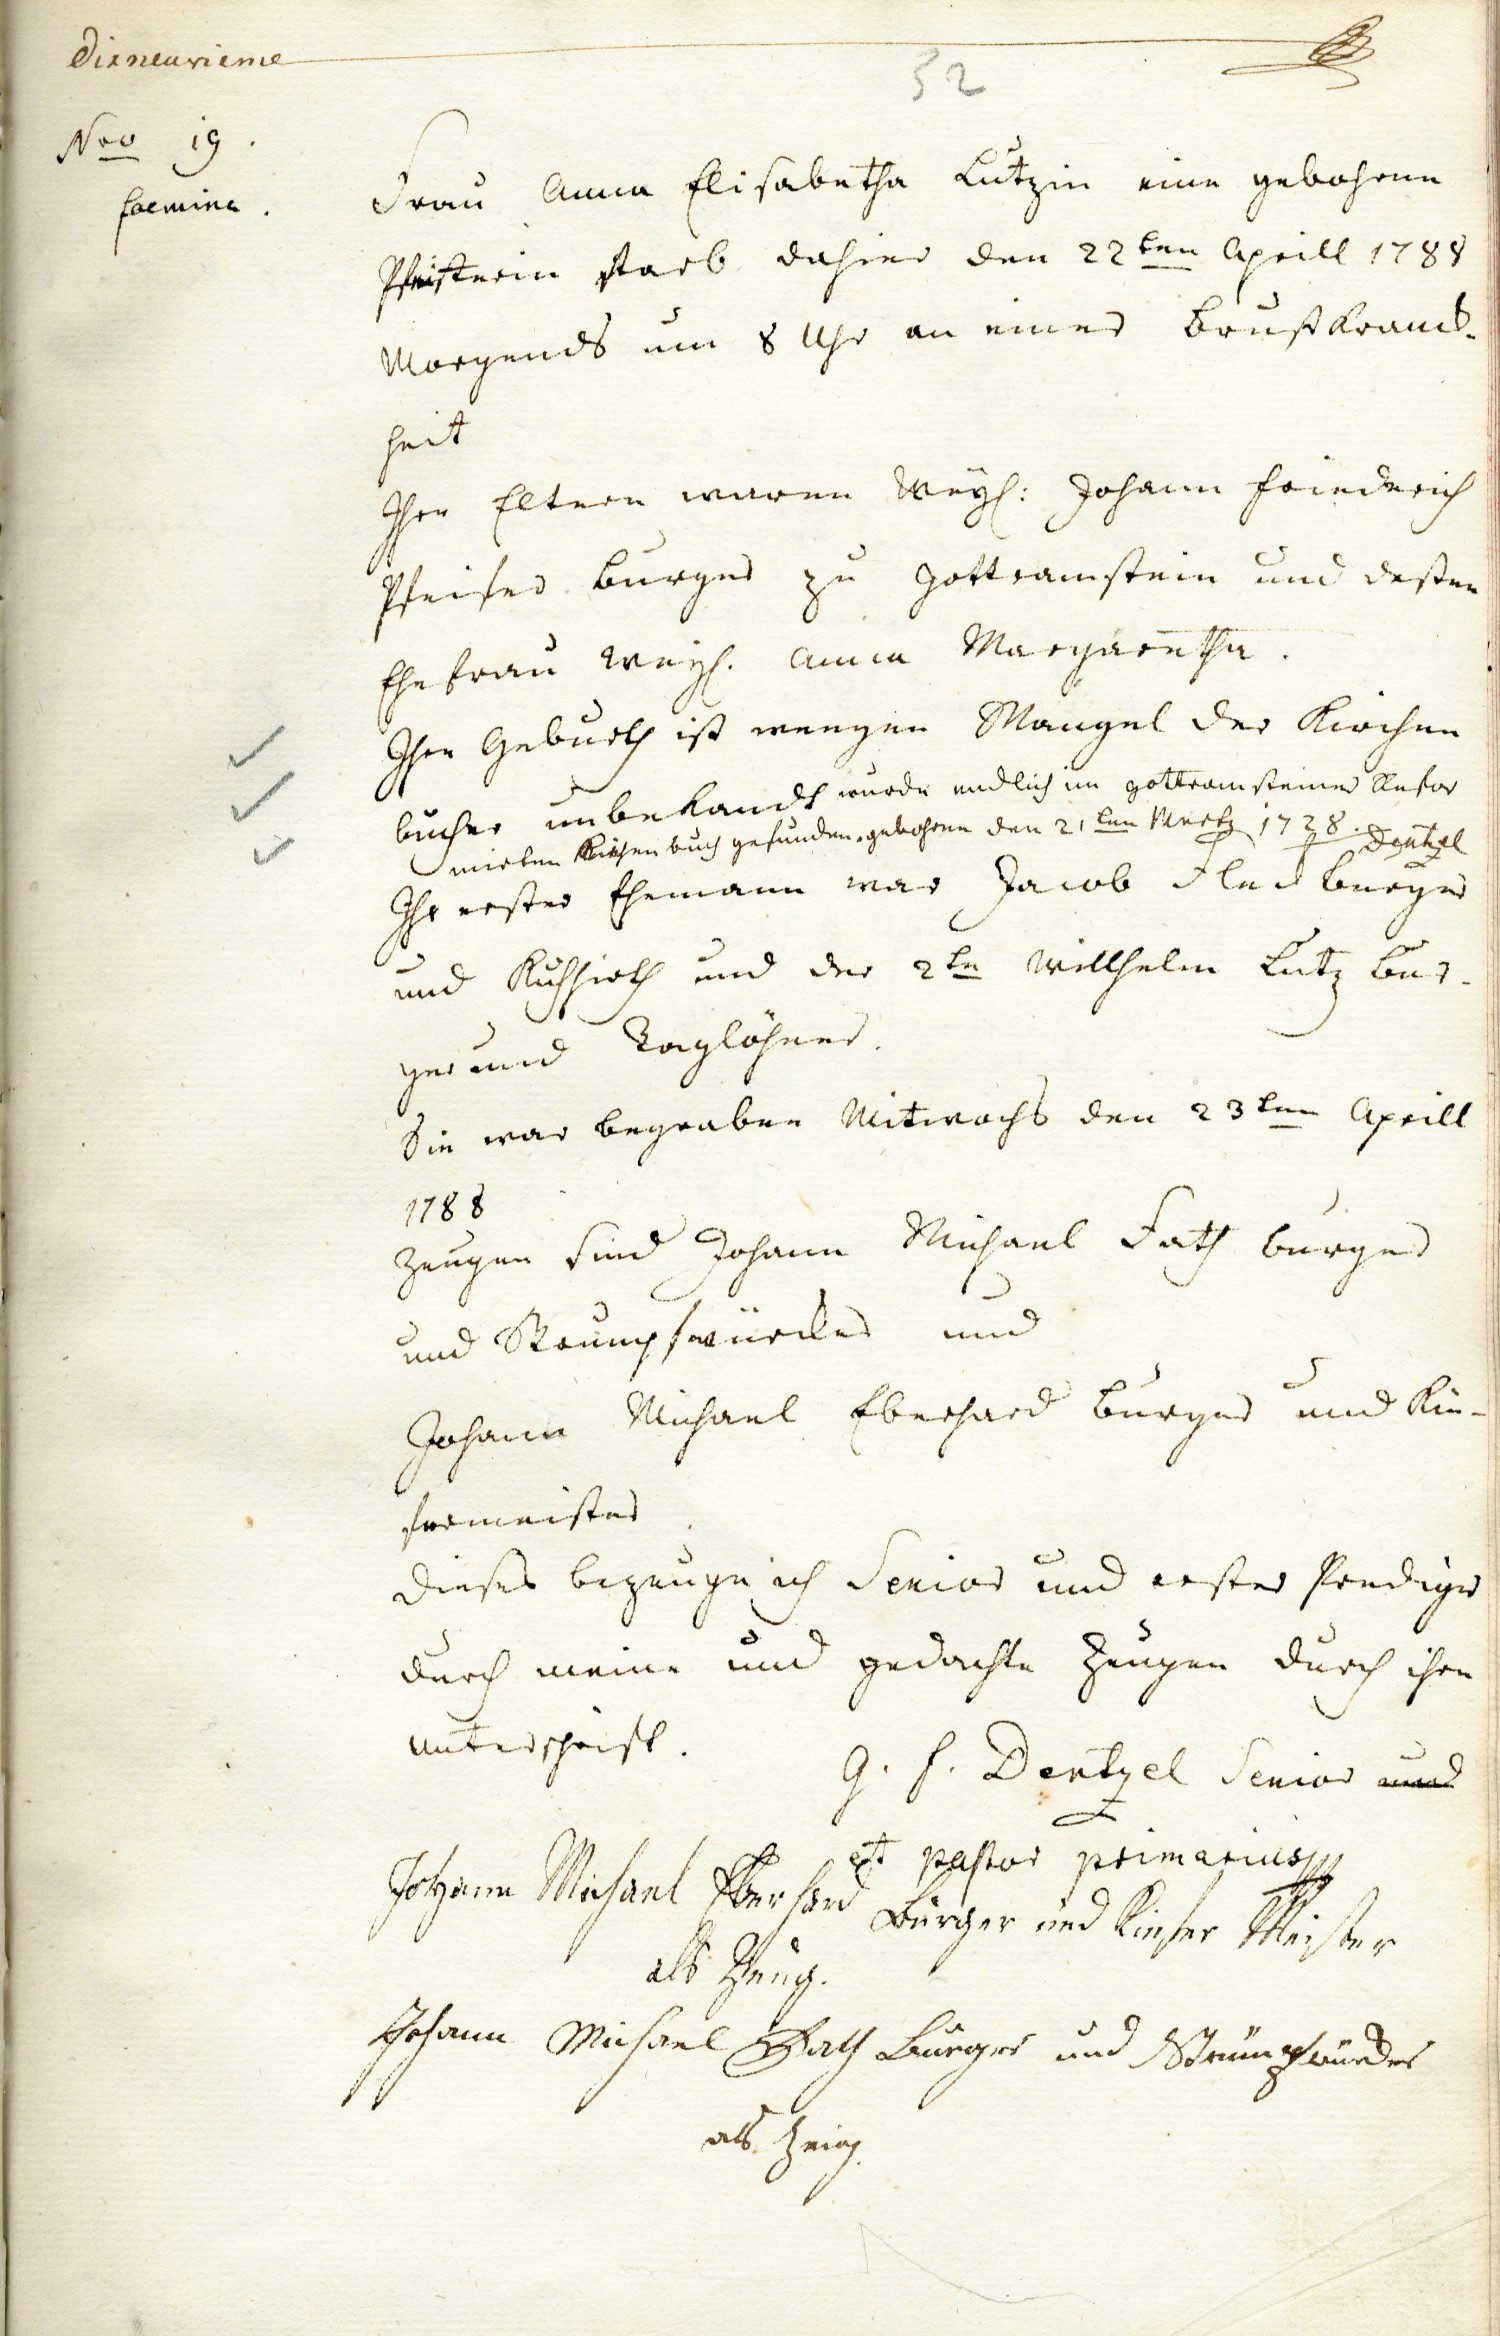 Dixneuvieme
52
Nro 19.
foemina.
Frau Anna Elisabetha Lutzin eine gebohrne
starb dahier den 22ten Aprill 1788
Morgends um 8 Uhr an einer Brustkranck-
heit
Ihre Eltern waren Weyl: Johann Friederich
Pfeifer Burger zu Gottramstein und dessen
Ehefrau Weyl. Anna Margaretha.
Ihre Geburth ist wengen Mangel der Kirchen
bucher unbekandt wurde endlich im gottramsteiner Refor
mirten Kirchenbuch gefunden. gebohren den 21ten Mertz 1728. Dentzel
Ihr erster Ehemann war Jacob Burger
und Kuhhirth und der 2te Willhelm Lutz Bur-
ger und Taglöhner.
Sie war begraben Mitwochs den 23ten Aprill
1788
Zeugen sind Johann Michael Fath burger
und Strumpfwürcker und
Johann Michael Eberhard Burger und Kie-
fermeister
Dieses bezeuge ich Senior und erster Prediger
durch meine und gedachte Zeugen durch ihre
unterschrift.
G. F. Dentzel Senior und
et pastor primarius
Johann Michael Eberhard Burger und Kiefer Meister
als Zeug.
Johann Michael Fath Burger und Strumpfwürcker
als Zeug.